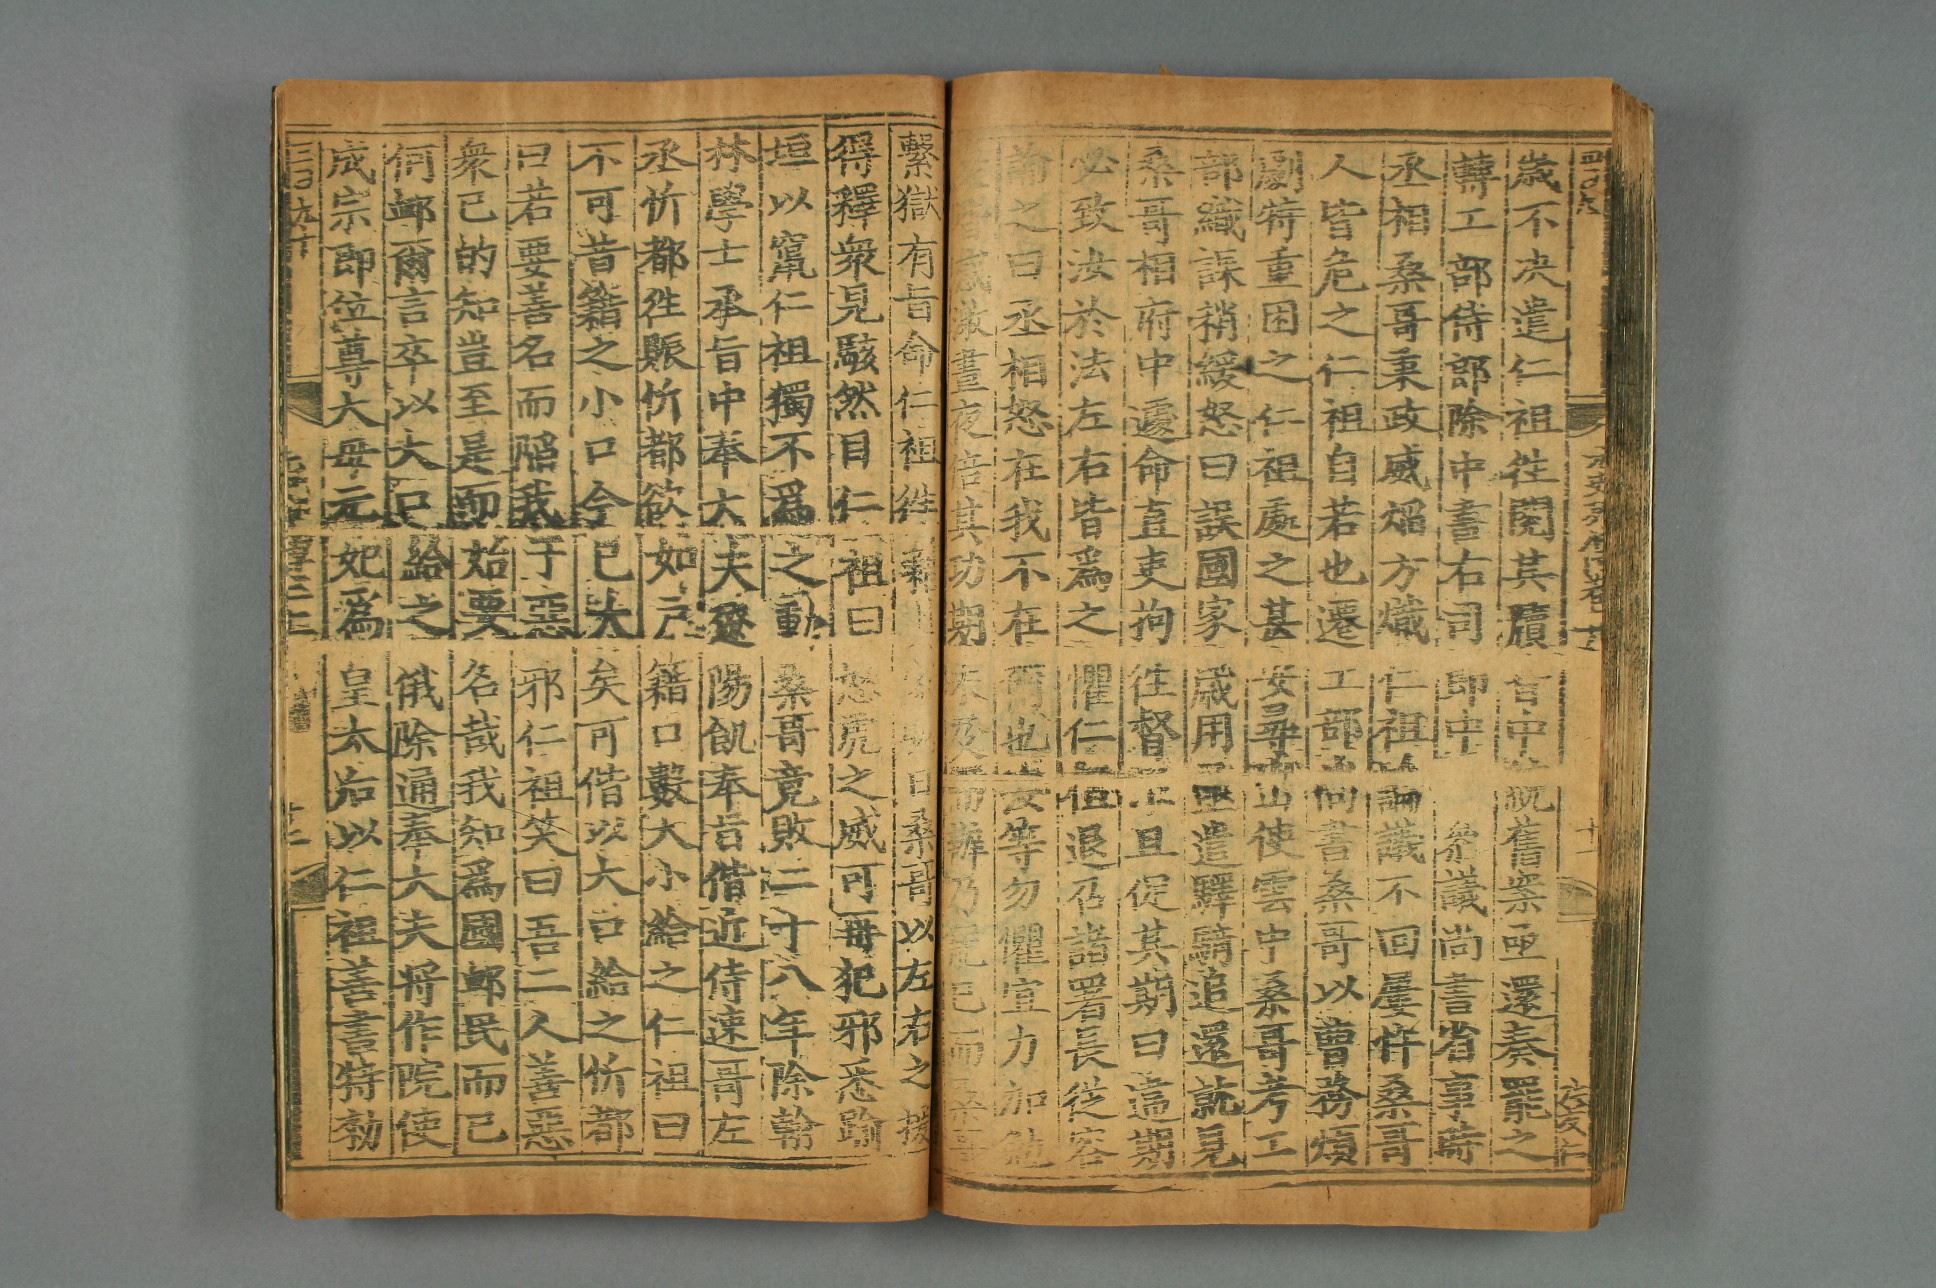 歲不决遣仁祖徃閱其牘中執舊案亟還奏罷之
轉工部侍郎除中書右司郎中參議尚書省事時
丞相桑哥秉政威焰方熾仁祖論議不回屢忤桑哥
人皆危之仁祖自若也遷工部尚書桑哥以曹務煩
劇特重困之仁祖處之甚安尋出使雲中桑哥考工
部織課稍緩怒曰誤國家歲用亟遣驛騎追還就見
桑哥相府中遽命直吏拘徃督工且促其期曰違期
必致汝於法左右皆爲之懼仁祖退召諸署長從容
諭之曰丞相怒在我不在爾也汝等勿懼宜力加勉
感激晝夜倍其功期未及而辦乃罷已而桑哥
繫獄有旨命仁祖徃籍日桑哥以左右之援
得釋衆見駭然目仁祖曰怒虎之威可再犯邪悉踰
垣以竄仁祖獨不爲之動桑哥竟敗二十八年除翰
林學士承旨中奉大夫遼陽飢奉旨偕近侍速哥左
丞忻都徃賑忻都欲如户籍口數大小給之仁祖曰
不可昔籍之小口今已大矣可偕以大口給之忻都
曰若要善名而陷我于惡邪仁祖笑曰吾二人善惡
衆已的知豈至是而始要名哉我知爲國䘏民而已
何䘏爾言卒以大口給之俄除通奉大夫將作院使
成宗即位尊大母元妃爲皇太后以仁祖善書特勅